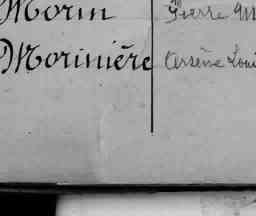 Morin Pierre M
Morinière Arsène Loui